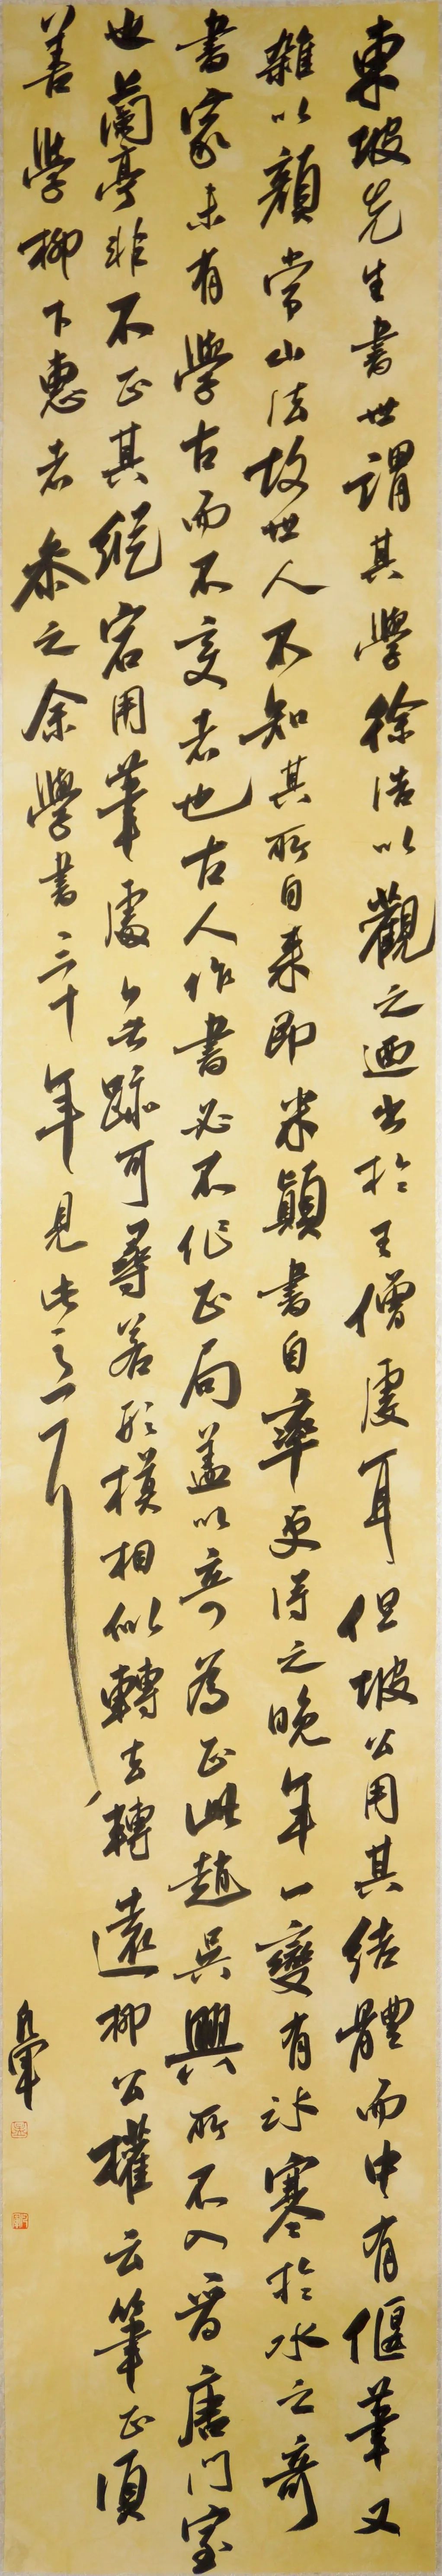 東坡先生書世謂其學徐浩以觀之迺出於王僧虔耳但坡公用其結體而中有偃筆又
雜以顏常山法故世人不知其所自來即米顛書自率更得之晚年一變有冰寒於水之奇
書家未有學古而不變者也古人作書必不作正局蓋以奇為正此趙吳興所不入晉唐門室
也蘭亭非不正其縱宕用筆處無跡可尋若形模相似轉去轉遠柳公權云筆正須
善學柳下惠者參之余學書三十年見此意耳